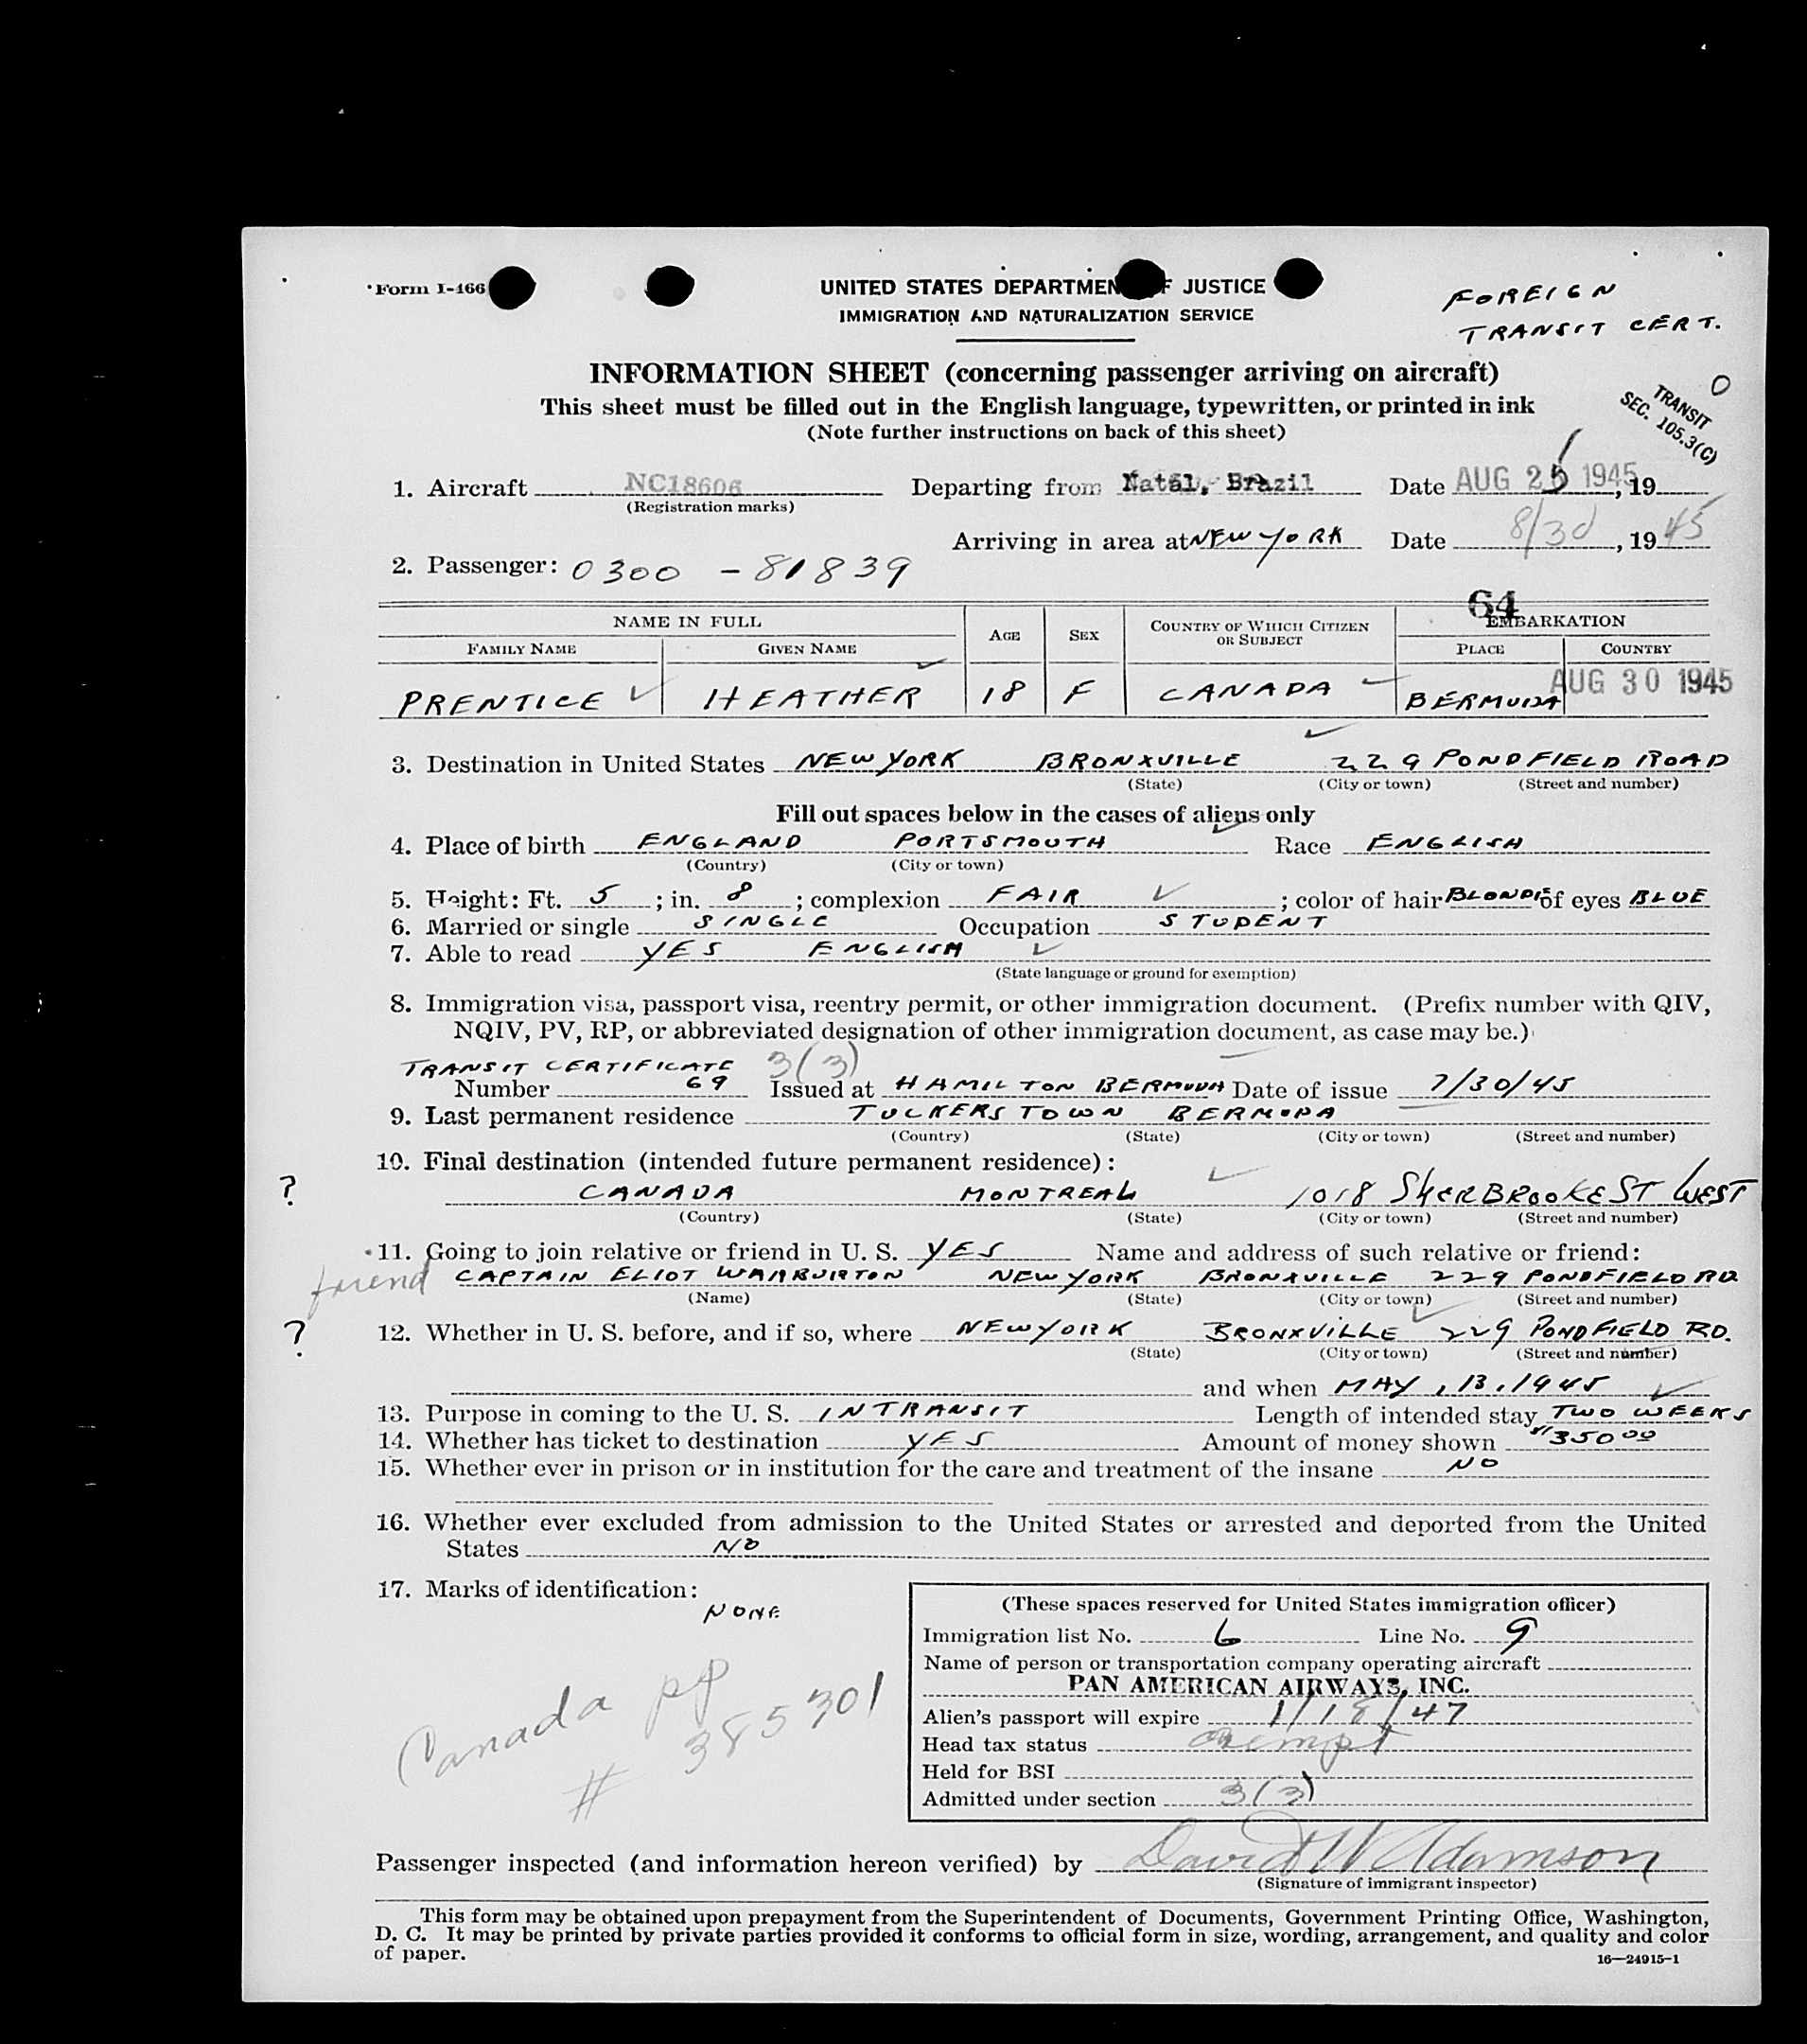 Form I-466
UNITED STATES DEPARTMENT OF JUSTICE
IMMIGRATION AND NATURALIZATION SERVICE
FOREIGN
TRANSIT CERT.
INFORMATION SHEET (concerning passenger arriving on aircraft)
This sheet must be filled out in the English language, typewritten, or printed in ink
(Note further instructions on back of this sheet)
O
TRANSIT
SEC. 105.3(C)
1. Aircraft NC18606 Departing from Natal, Brazil Date AUG 25 1945, 19
(Registration marks)
Arriving in area at NEW YORK Date 8/30, 1945
2. Passenger: 0300 - 81839
64
NAME IN FULL AGE SEX COUNTRY OF WHICH CITIZEN OR SUBJECT EMBARKATION
FAMILY NAME GIVEN NAME PLACE COUNTRY
AUG 30 1945
PRENTICE HEATHER 18 F CANADA BERMUDA
3. Destination in United States NEW YORK BRONXVILLE 229 PONDFIELD ROAD
(State) (City or town) (Street and number)
Fill out spaces below in the cases of aliens only
4. Place of birth ENGLAND PORTSMOUTH Race ENGLISH
(Country) (City or town)
5. Height: Ft. 5; in. 8; complexion FAIR; color of hair BLONDE of eyes BLUE
6. Married or single SINGLE Occupation STUDENT
7. Able to read YES ENGLISH
(State language or ground for exemption)
8. Immigration visa, passport visa, reentry permit, or other immigration document. (Prefix number with QIV,
NQIV, PV, RP, or abbreviated designation of other immigration document, as case may be.)
TRANSIT CERTIFICATE 3(3)
Number 69 Issued at HAMILTON BERMUDA Date of issue 7/30/45
9. Last permanent residence TUCKERS TOWN BERMUDA
(Country) (State) (City or town) (Street and number)
10. Final destination (intended future permanent residence):
? CANADA MONTREAL 1018 SHERBROOKE ST WEST
(Country) (State) (City or town) (Street and number)
11. Going to join relative or friend in U. S. YES Name and address of such relative or friend:
friend CAPTAIN ELIOT WARBURTON NEW YORK BRONXVILLE 229 PONDFIELD RD
(Name) (State) (City or town) (Street and number)
? 12. Whether in U. S. before, and if so, where NEW YORK BRONXVILLE 229 PONDFIELD RD.
(State) (City or town) (Street and number)
and when MAY, 13, 1945
13. Purpose in coming to the U. S. IN TRANSIT Length of intended stay TWO WEEKS
14. Whether has ticket to destination YES Amount of money shown $350 00
15. Whether ever in prison or in institution for the care and treatment of the insane NO
16. Whether ever excluded from admission to the United States or arrested and deported from the United
States NO
17. Marks of identification:
NONE
Canada pp
# 385301
(These spaces reserved for United States immigration officer)
Immigration list No. 6 Line No. 9
Name of person or transportation company operating aircraft
PAN AMERICAN AIRWAYS, INC.
Alien's passport will expire 1/18/47
Head tax status exempt
Held for BSI
Admitted under section 3(3)
Passenger inspected (and information hereon verified) by David W Adamson
(Signature of immigrant inspector)
This form may be obtained upon prepayment from the Superintendent of Documents, Government Printing Office, Washington,
D. C. It may be printed by private parties provided it conforms to official form in size, wording, arrangement, and quality and color
of paper.
16—24915-1